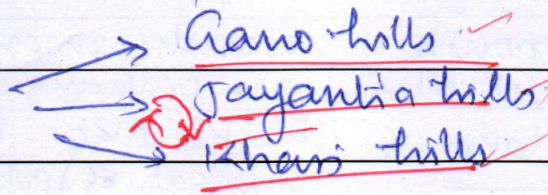 Garo hills
Jayantia hills
Khasi hills